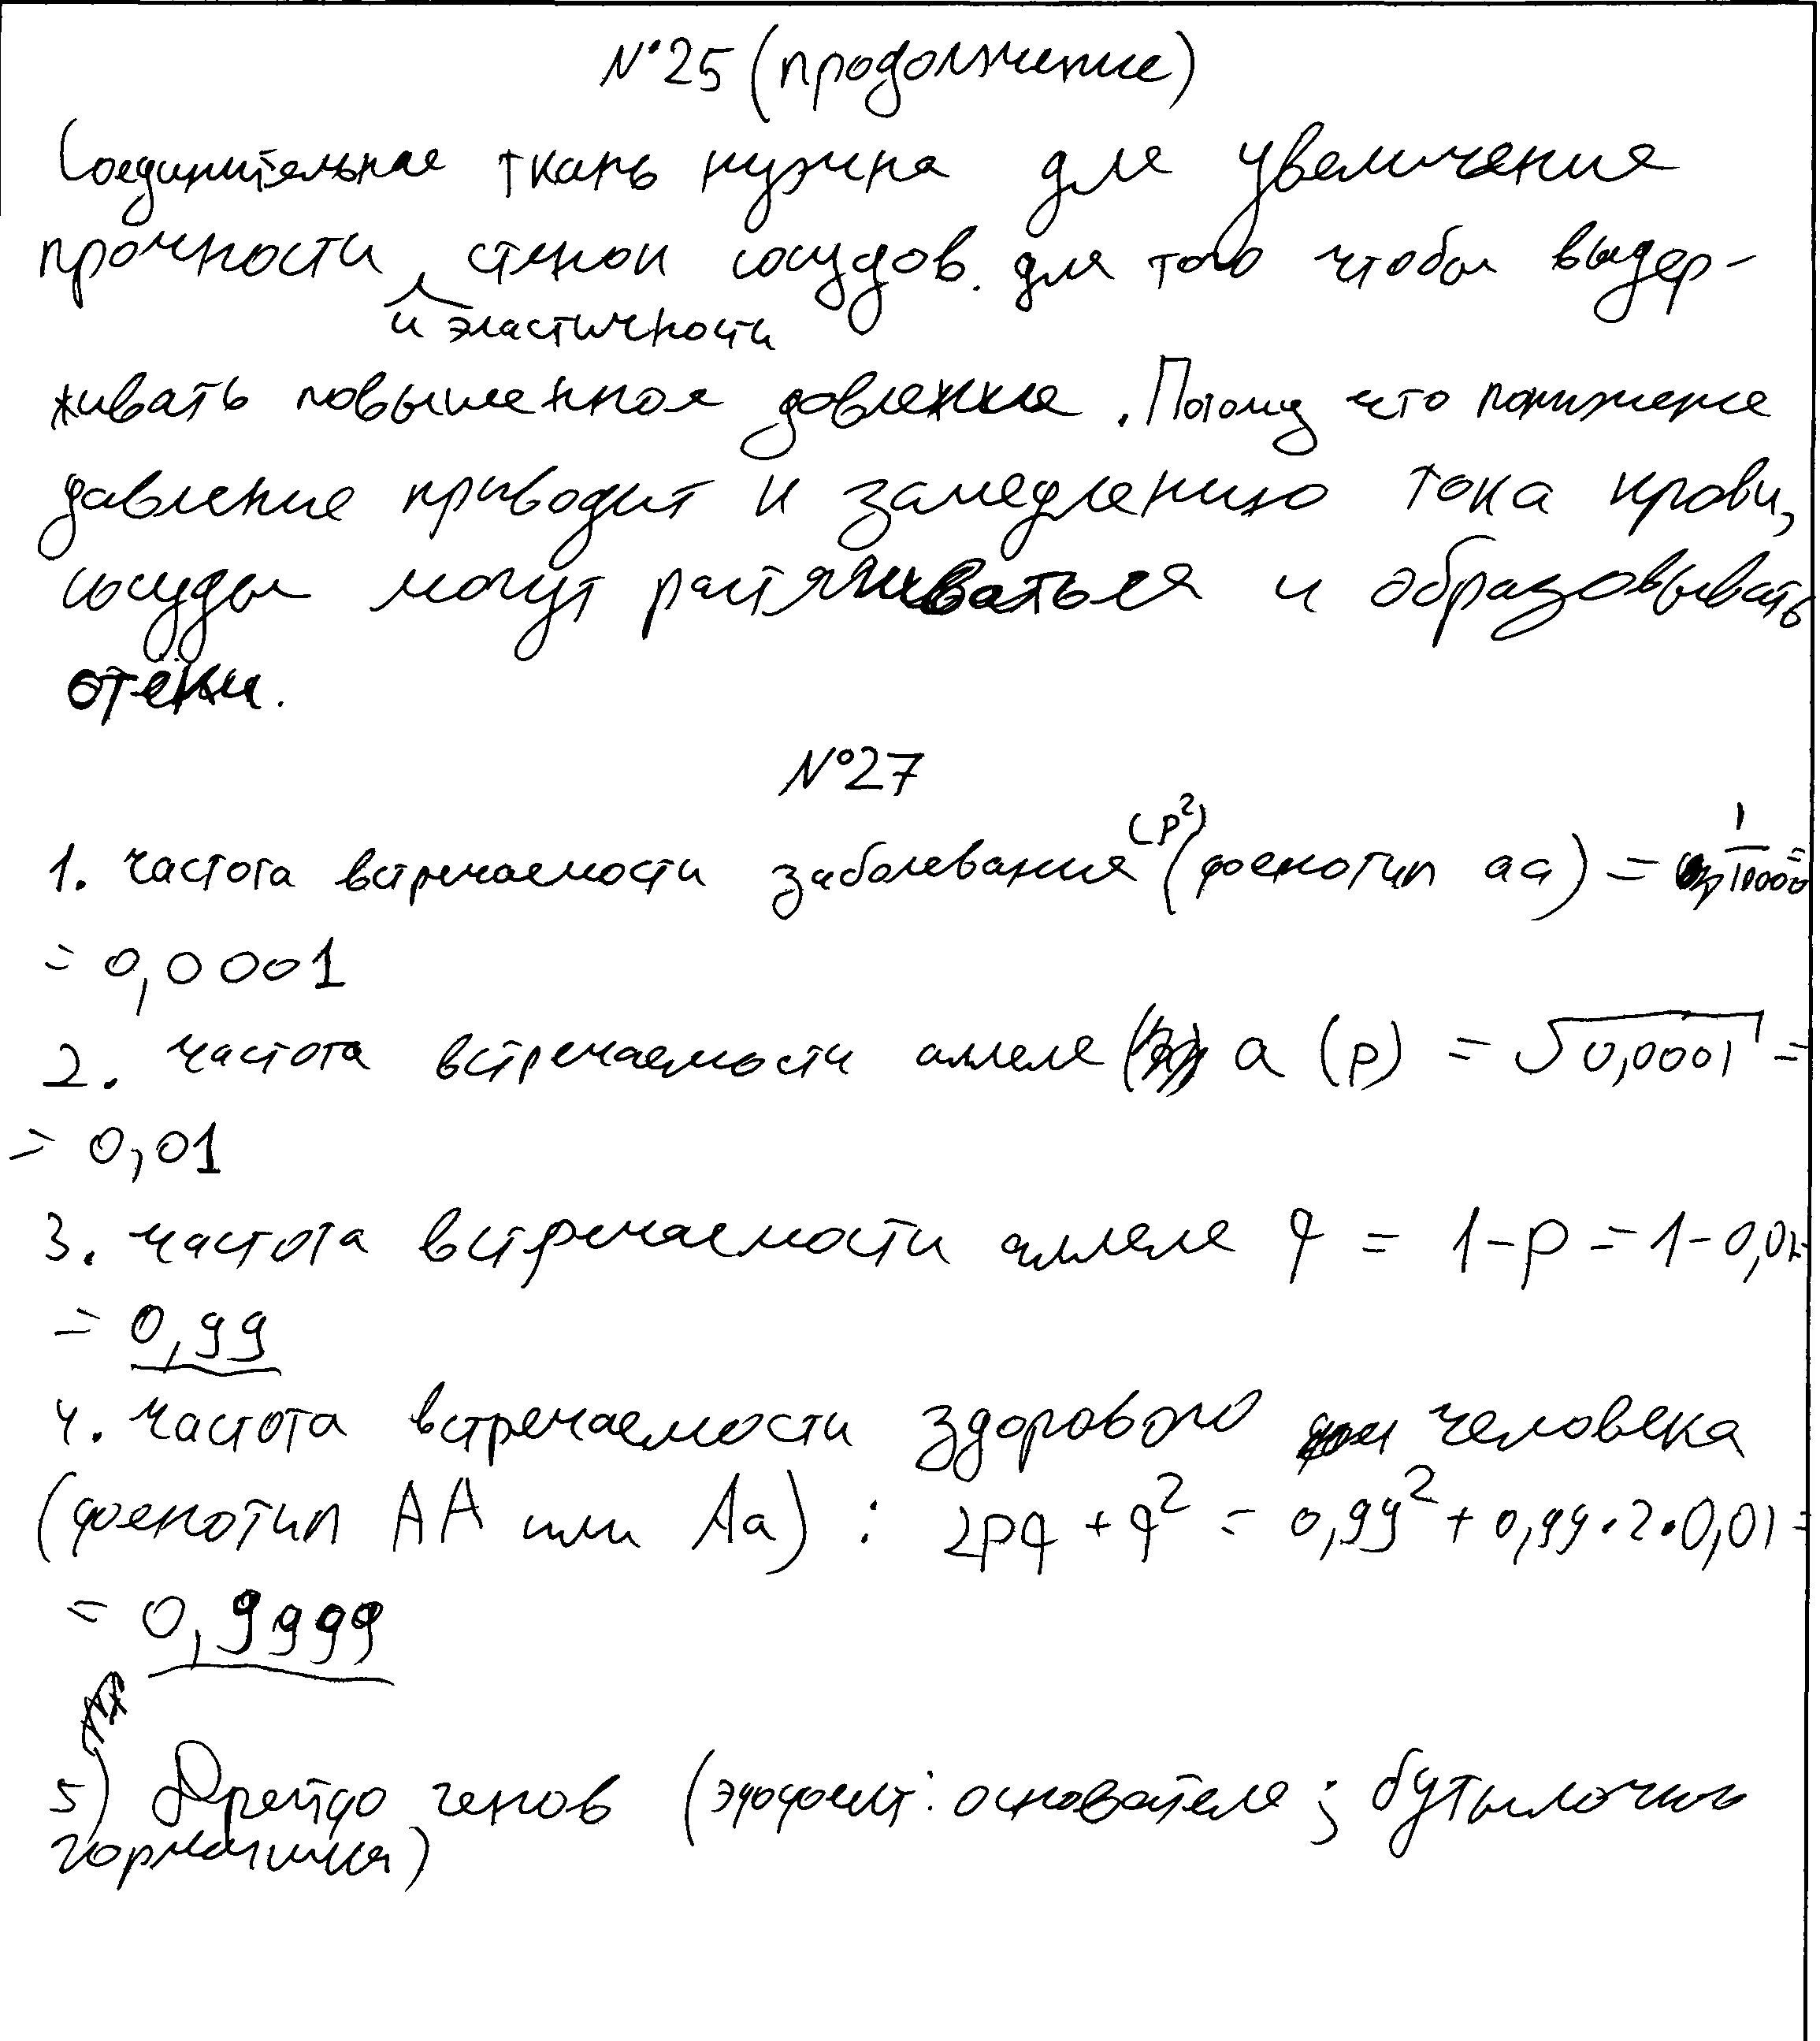 №25 (продолжение)
Соединительная ткань нужна для увеличения
прочности и эластичности стенок сосудов. для того чтобы выдер-
живать повышенное давление. Потому что понижение
давление приводит к замедлению тока крови,
сосуды могут растягиваться и образовывать
отёки.
№27
1. частота встречаемости заболевания (p²) (фенотип aa) = 1/10000 =
= 0,0001
2. частота встречаемости аллеля a (p) = √0,0001 =
= 0,01
3. частота встречаемости аллеля q = 1-p = 1-0,01=
= 0,99
4. частота встречаемости здорового человека
(фенотип AA или Aa) : 2pq + q² = 0,99² + 0,99·2·0,01=
= 0,9999
5) Дрейф генов (эффект: основателя; бутылочного
горлышка)